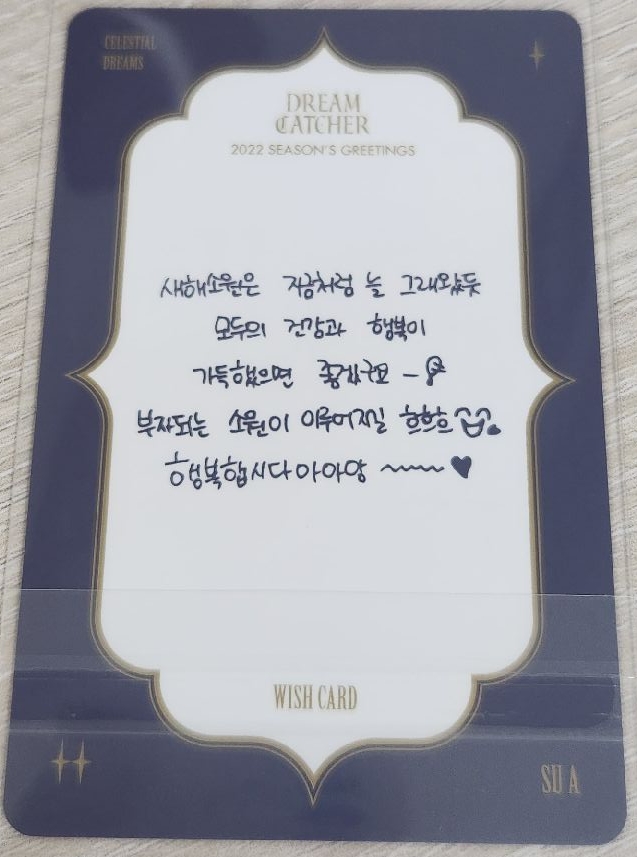 CELESTIAL
DREAMS
DREAM
CATCHER
2022 SEASON'S GREETINGS
새해소원은 지금처럼 늘 그래왔듯
모두의 건강과 행복이
가득했으면 좋겠구요 ―
부자되는 소원이 이루어질 흐흐흐
행복합시다아아앙 ~~~~ ♥
WISH CARD
SU A